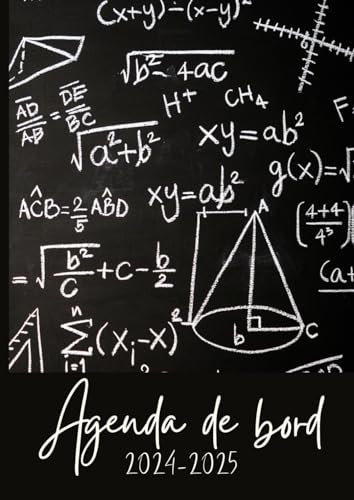 (x+y)÷(x-y)²
√b²-4ac
H⁺ CH₄
AD/AB = DE/BC
√a²+b²
xy=ab²
g(x)=√
AĈB=2/5 AB̂D
xy=ab²
(4+4/4³)
= √b²/c +c-b/2
(a+
A
b
C
n
∑(xᵢ-x)²
i=1
Agenda de bord
2024-2025